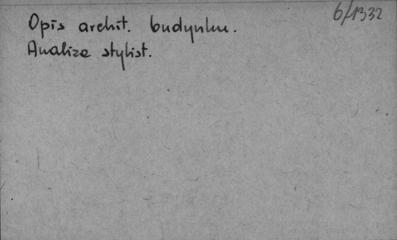 6/1332
Opis archit. budynku.
Analiza stylist.